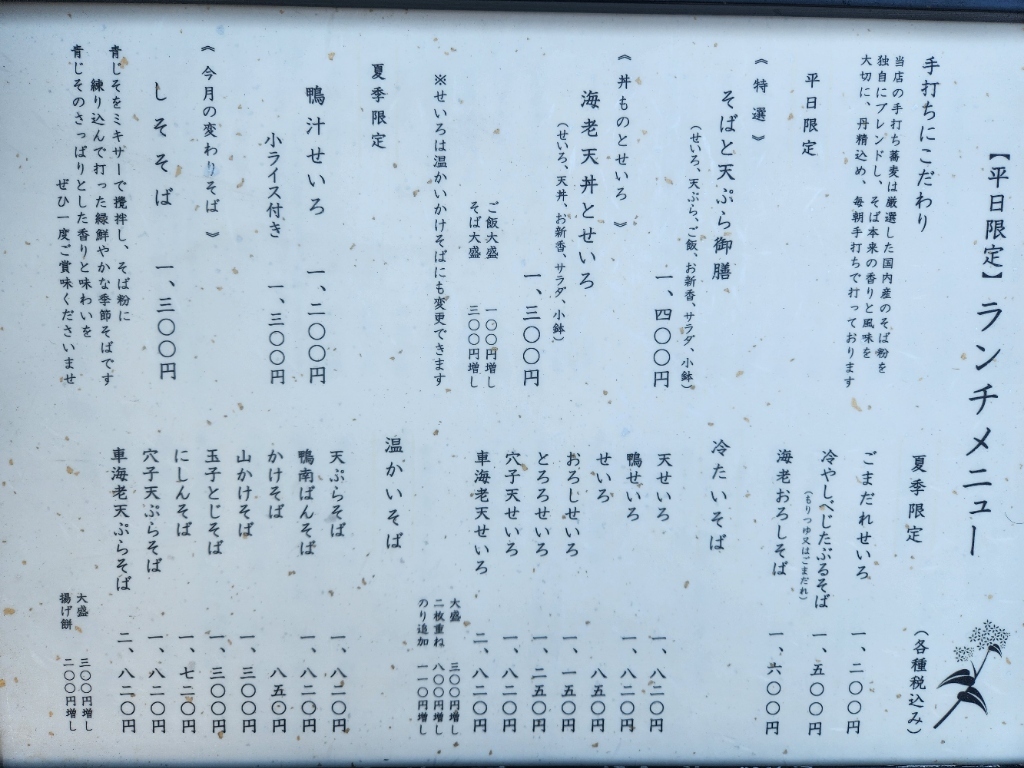 【平日限定】ランチメニュー
(各種税込み)
手打ちにこだわり
当店の手打ち蕎麦は厳選した国内産のそば粉を
独自にブレンドし、そば本来の香りと風味を
大切に、丹精込め、毎朝手打ちで打っております
平日限定
《特選》
そばと天ぷら御膳 一、四〇〇円
(せいろ、天ぷら、ご飯、お新香、サラダ、小鉢)
《丼ものとせいろ》
海老天丼とせいろ 一、三〇〇円
(せいろ、天丼、お新香、サラダ、小鉢)
ご飯大盛 一〇〇円増し
そば大盛 三〇〇円増し
※せいろは温かいかけそばにも変更できます
夏季限定
鴨汁せいろ 一、二〇〇円
小ライス付き 一、三〇〇円
《今月の変わりそば》
しそそば 一、三〇〇円
青じそをミキサーで攪拌し、そば粉に
練り込んで打った緑鮮やかな季節そばです
青じそのさっぱりとした香りと味わいを
ぜひ一度ご賞味くださいませ
夏季限定
ごまだれせいろ 一、二〇〇円
冷やしべじたぶるそば 一、五〇〇円
(もりつゆ又はごまだれ)
海老おろしそば 一、六〇〇円
冷たいそば
天せいろ 一、八二〇円
鴨せいろ 一、八二〇円
せいろ 八五〇円
おろしせいろ 一、一五〇円
とろろせいろ 一、二五〇円
穴子天せいろ 一、八二〇円
車海老天せいろ 二、八二〇円
大盛 三〇〇円増し
二枚重ね 八〇〇円増し
のり追加 一一〇円増し
温かいそば
天ぷらそば 一、八二〇円
鴨南ばんそば 一、八二〇円
かけそば 八五〇円
山かけそば 一、三〇〇円
玉子とじそば 一、三〇〇円
にしんそば 一、七二〇円
穴子天ぷらそば 一、八二〇円
車海老天ぷらそば 二、八二〇円
大盛 三〇〇円増し
揚げ餅 二〇〇円増し